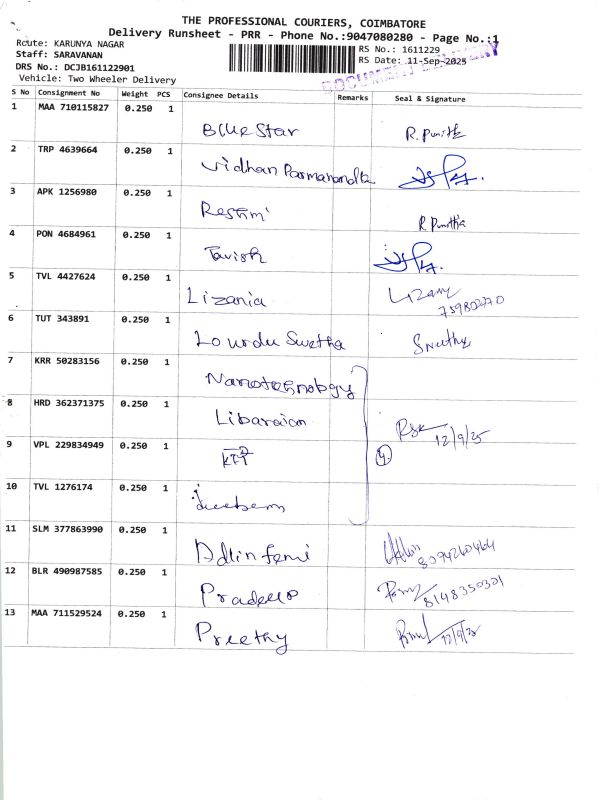 THE PROFESSIONAL COURIERS, COIMBATORE
Delivery Runsheet - PRR - Phone No.:9047080280 - Page No.:1
Route: KARUNYA NAGAR
RS No.: 1611229
Staff: SARAVANAN
RS Date: 11-Sep-2025
DOCUMENT DELIVERY
DRS No.: DCJB161122901
Vehicle: Two Wheeler Delivery
S No Consignment No Weight PCS Consignee Details Remarks Seal & Signature
1 MAA 710115827 0.250 1 Blue Star R. Punith
2 TRP 4639664 0.250 1 Vidhan
3 APK 1256980 0.250 1 Reshmi
4 PON 4684961 0.250 1 Tavish
5 TVL 4427624 0.250 1 Lizania
6 TUT 343891 0.250 1 Lourdu Swetha Swetha
7 KRR 50283156 0.250 1 Nanotechnology
8 HRD 362371375 0.250 1 Libaraion
12/9/25
9 VPL 229834949 0.250 1 4
10 TVL 1276174 0.250 1
11 SLM 377863990 0.250 1 Adlin femi
12 BLR 490987585 0.250 1
8148350301
13 MAA 711529524 0.250 1 Preethy 12/9/25